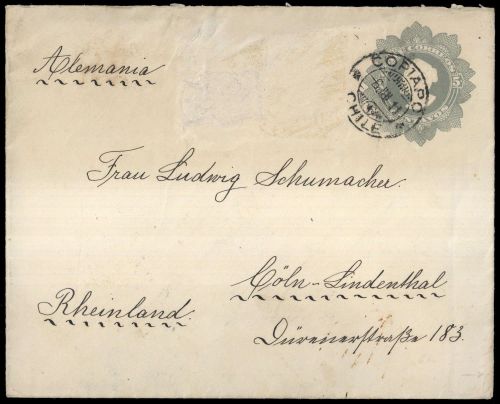 Alemania
COPIAPO
CHILE
Frau Ludwig Schumacher.
Cöln-Lindenthal
Rheinland.
Dürenerstraße 183.